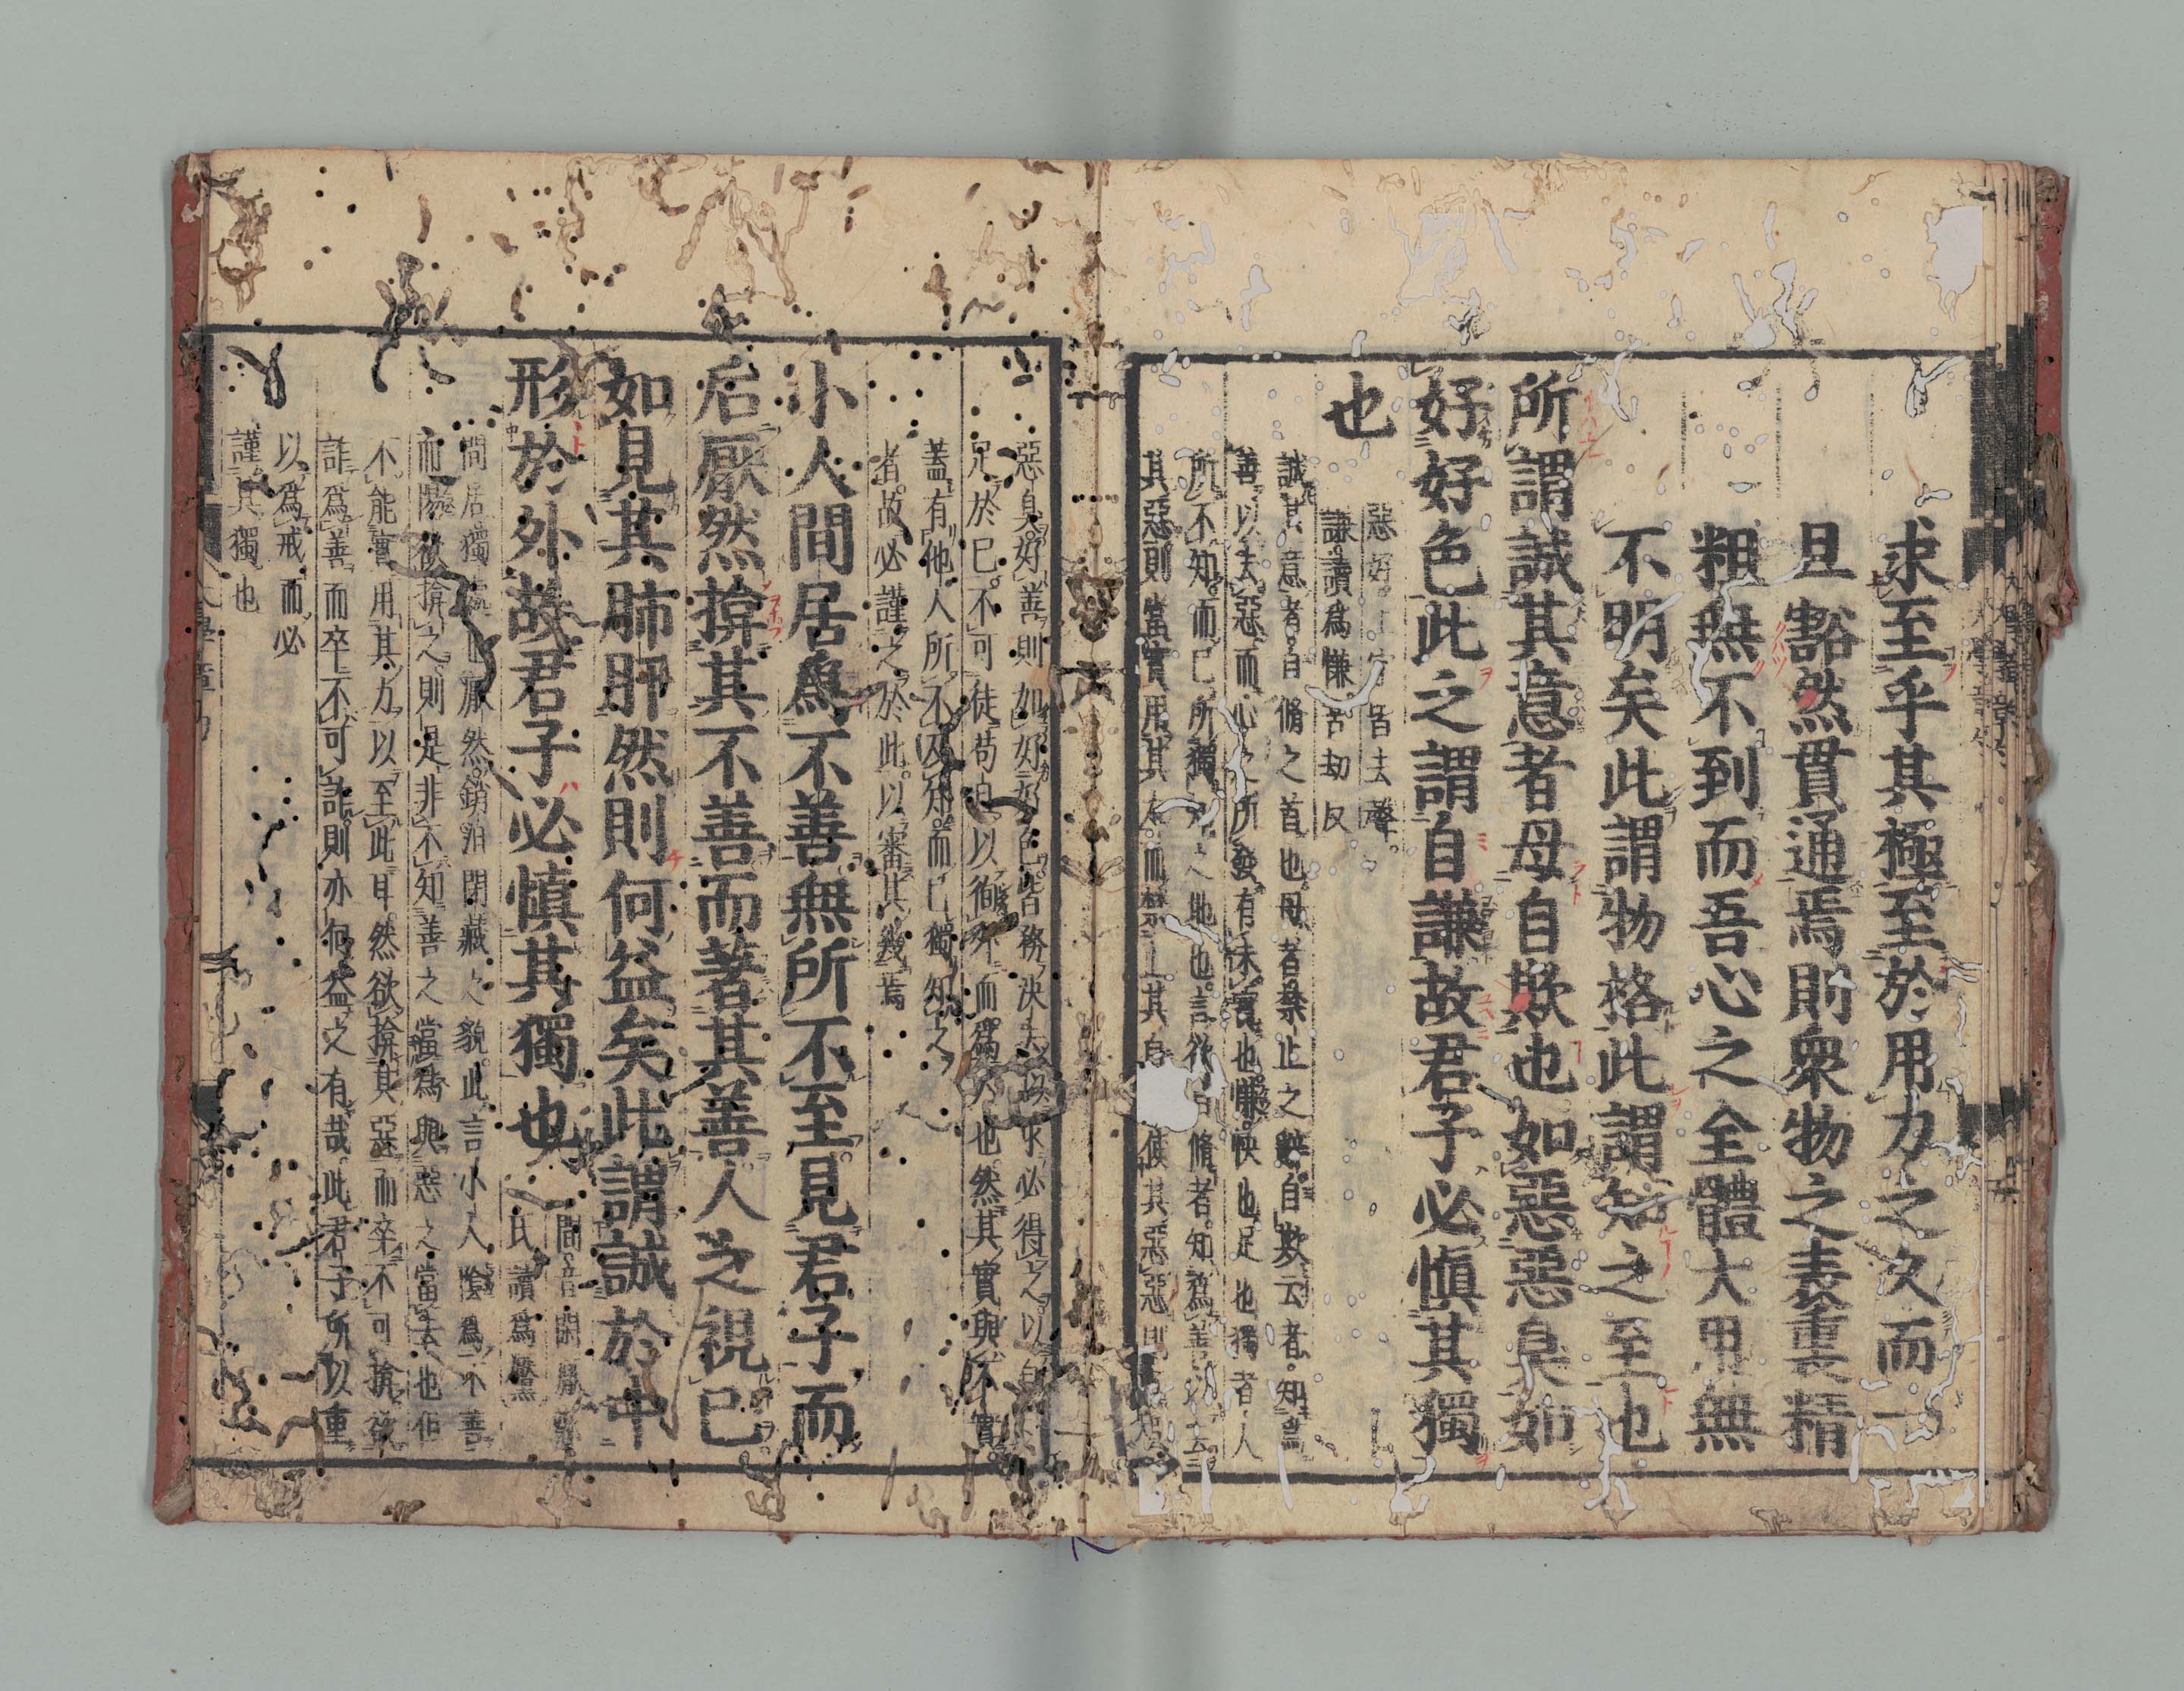 求至乎其極至於用力之久而一
旦豁然貫通焉則衆物之表裏精
粗無不到而吾心之全體大用無
不明矣此謂物格此謂知之至也
所謂誠其意者毋自欺也如惡惡臭如
好好色此之謂自謙故君子必愼其獨
也
惡好 皆去聲
謙讀爲慊苦劫反
誠其意者自脩之首也毋者禁止之辭自欺云者知爲
善以去惡而心之所發有未實也慊快也足也獨者人
所不知而已所獨 之地也言欲 脩者知爲善以去
其惡則當實用其力而禁止其自 使其惡惡則
惡臭好善則如好好色皆務決去 求必得之以
足於已不可徒苟且以徇外而爲人也然其實與不實
蓋有他人所不及知而已獨知之
者故必謹之於此以審其幾焉
小人閒居爲不善無所不至見君子而
后厭然揜其不善而著其善人之視已
如見其肺肝然則何益矣此謂誠於中
形於外故君子必愼其獨也
閒音閑厭
氏讀爲黶
閒居獨處也厭然銷沮閉藏之貌此言小人陰爲不善
而陽欲揜之則是非不知善之當爲與惡之當去也但
不能實用其力以至此耳然欲揜其惡而卒不可揜欲
詐爲善而卒不可詐則亦何益之有哉此君子所以重
以爲戒而必
謹其獨也